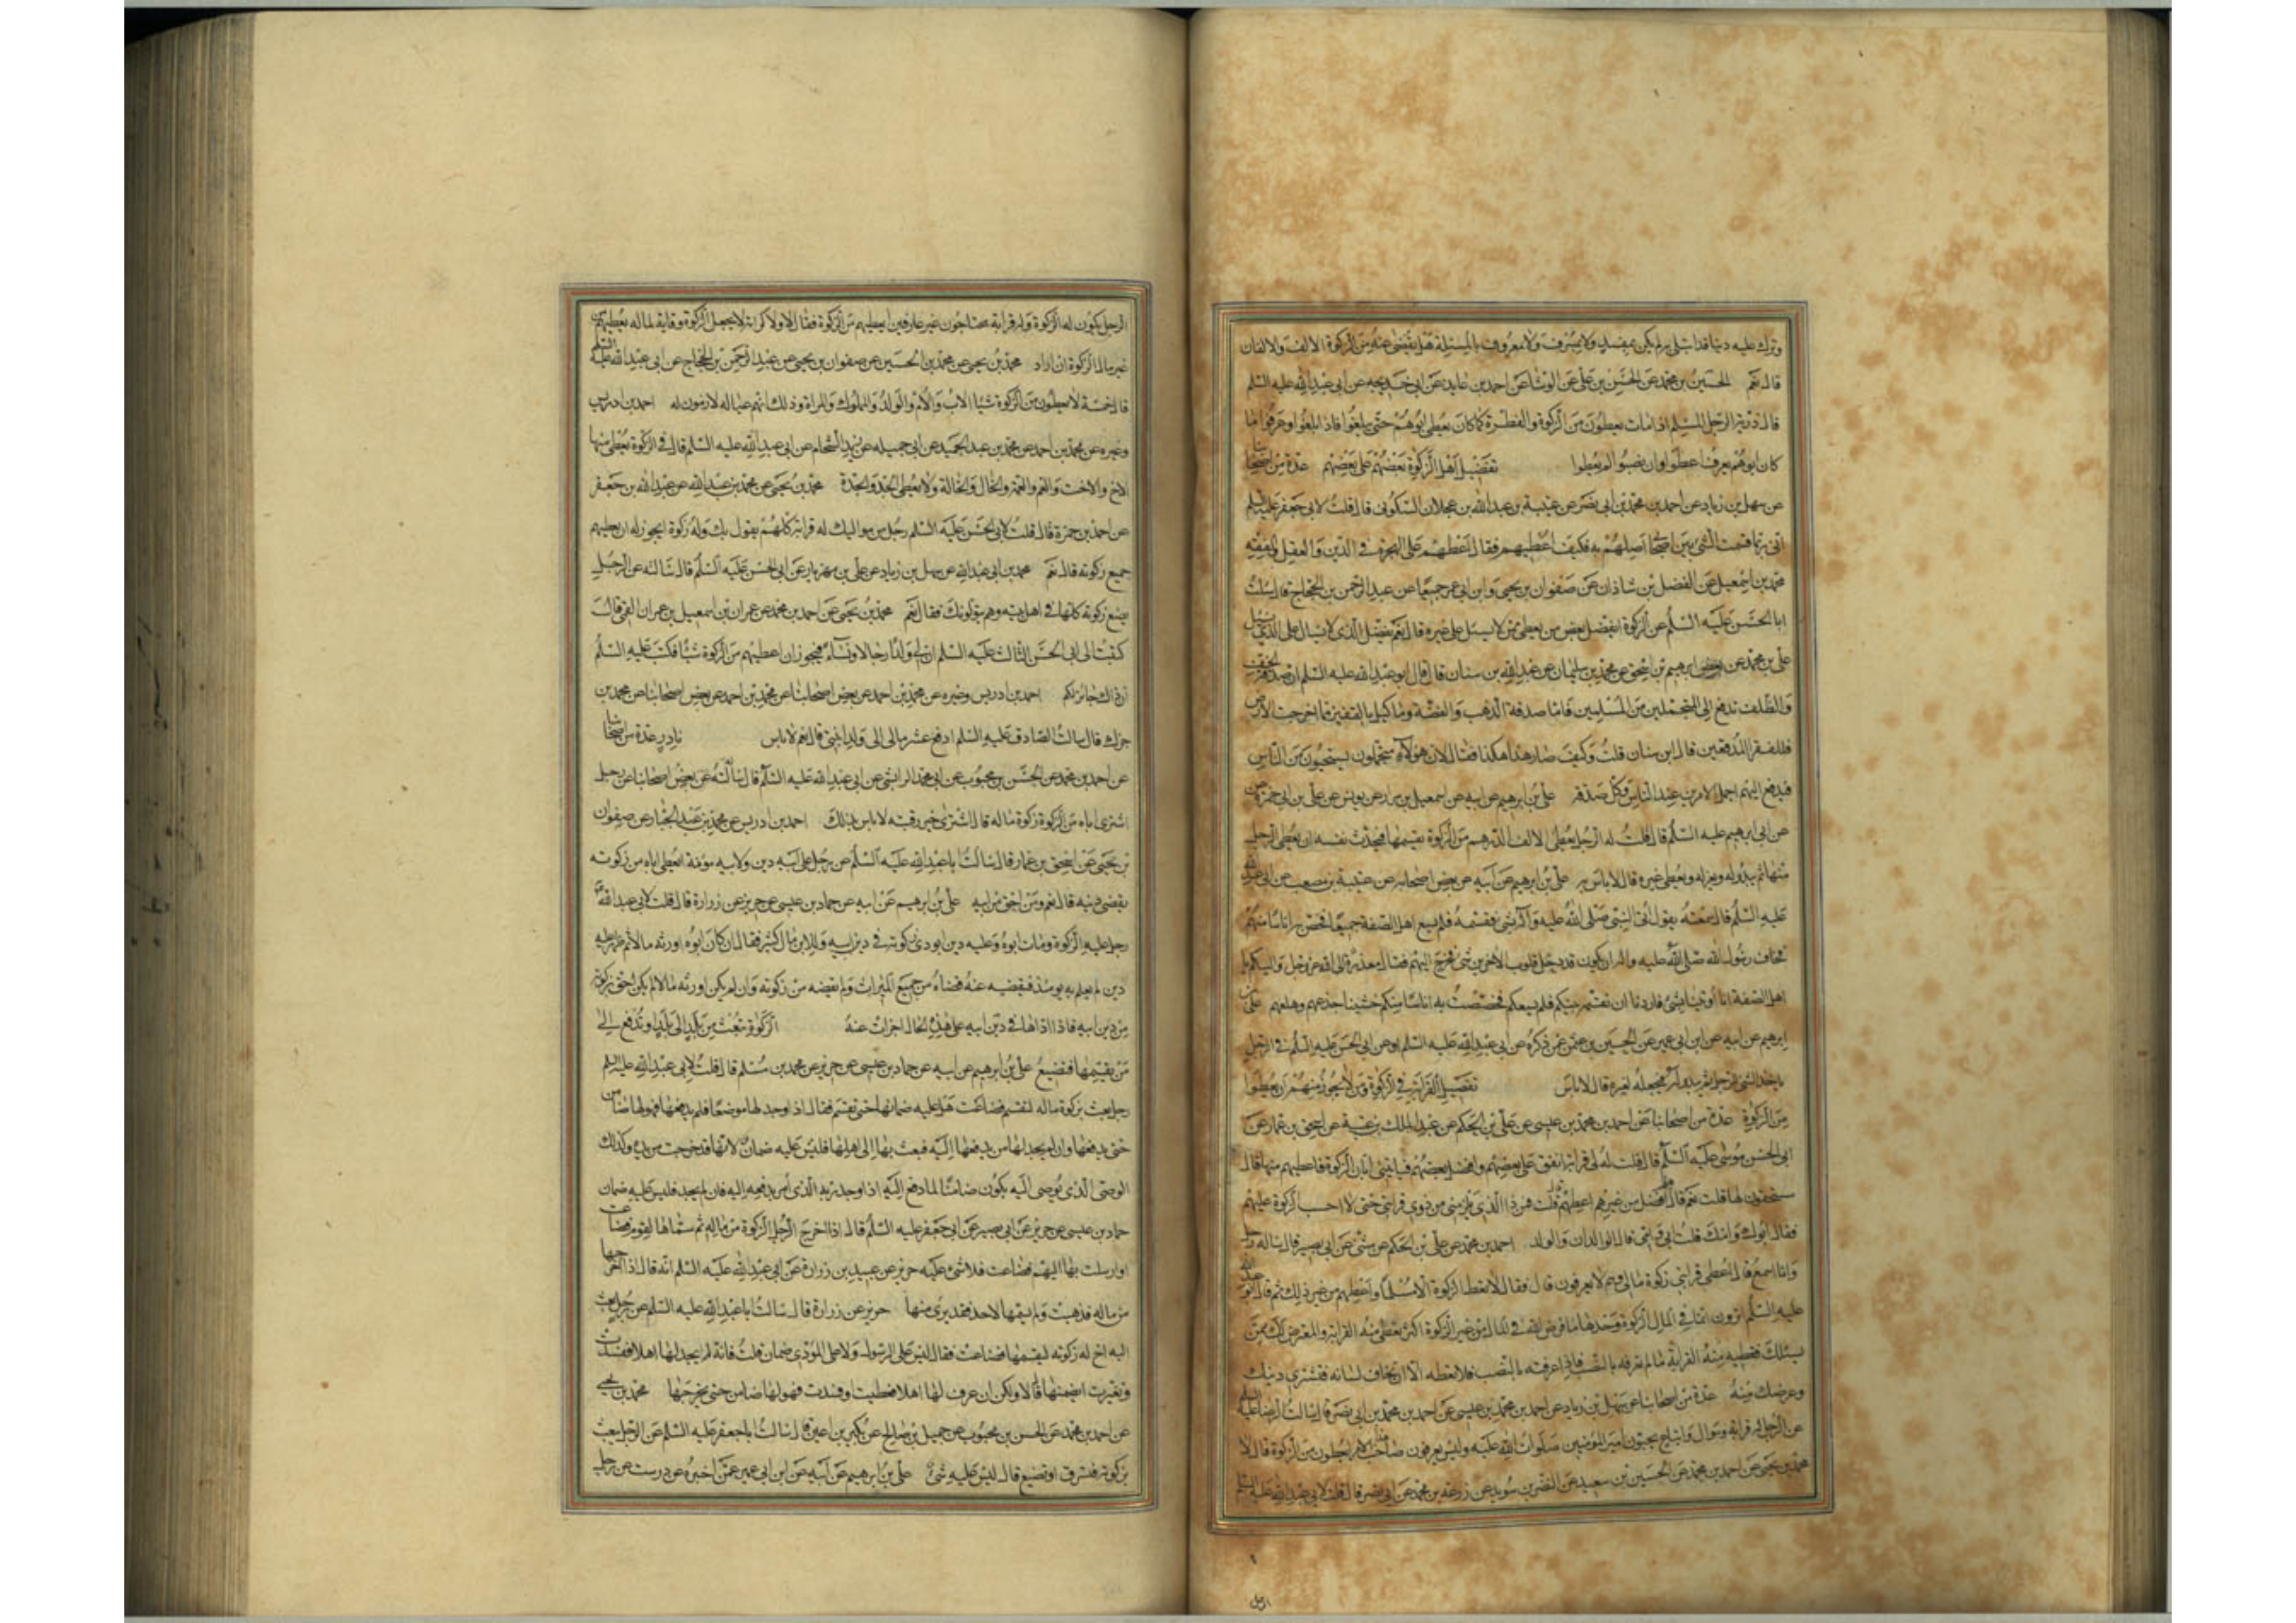 وترك عليه دينا قد ابتلى به لم يكن بمفسد ولا بمسرف ولا معروف بالمسئلة هل يقضى عنه من الزكوة الالف والالفان
قال نعم الحسين بن محمد عن الحسن بن علي عن الوشا عن احمد بن عايذ عن ابي خديجه عن ابي عبد الله عليه السلم
قال ذرية الرجل المسلم اذا مات يعطون من الزكوة والفطرة كما كان يعطى ابوهم حتى يبلغوا فاذا بلغوا وعرفوا ما
كان ابوهم يعرف اعطوا وان نصبوا لم يعطوا تفضيل اهل الزكوة بعضهم على بعضهم عدة من اصحابنا
عن سهل بن زياد عن احمد بن محمد بن ابي نصر عن عتيبة بن عبد الله بن عجلان السكوني قال قلت لابي جعفر عليه السلم
اني ربما قسمت الشئ بين اصحابي اصلهم به فكيف اعطيهم فقال اعطهم على الهجرة في الدين والعقل والفقه
محمد بن اسمعيل عن الفضل بن شاذان عن صفوان بن يحيى وابن ابي عمير جميعا عن عبد الرحمن بن الحجاج قال سئلت
ابا الحسن عليه السلم عن الزكوة ايفضل بعض من يعطى ممن لا يسئل على غيره قال نعم يفضل الذي لا يسال على الذي يسئل
علي بن محمد عن ابرهيم بن اسحق عن محمد بن سليمان عن عبد الله بن سنان قال قال ابو عبد الله عليه السلم ان صدقة الخف
والظلف تدفع الى المتجملين من المسلمين فاما صدقة الذهب والفضة وما كيل بالقفيز مما اخرجت الارض
فللفقراء المدقعين قال ابن سنان قلت وكيف صار هذا هكذا فقال لان هؤلاء متجملون يستحيون من الناس
فيدفع اليهم اجمل الامرين عند الناس وكل صدقة علي بن ابرهيم عن ابيه عن اسمعيل بن مرار عن يونس عن علي بن ابي حمزة
عن ابي ابرهيم عليه السلم قال قلت له الرجل يعطى الالف الدرهم من الزكوة يقسمها فيحدث نفسه ان يعطى الرجل
منها ثم يبدو له ويعزله ويعطى غيره قال لا باس به علي بن ابرهيم عن ابيه عن بعض اصحابه عن عتيبة بن مصعب عن ابي عبد الله
عليه السلم قال سمعته يقول اتى النبي صلى الله عليه وآله بشئ فقسمه فلم يسع اهل الصفة جميعا فخص به اناسا منهم
فخاف رسول الله صلى الله عليه واله ان يكون قد دخل قلوب الاخرين شئ فخرج اليهم فقال معذرة الى الله عز وجل واليكم يا
اهل الصفة انا اوتينا بشئ فاردنا ان نقسمه بينكم فلم يسعكم فخصصت به اناسا منكم خشينا جزعهم وهلعهم علي بن
ابرهيم عن ابيه عن ابن ابي عمير عن الحسين بن عثمن عمن ذكره عن ابي عبد الله عليه السلم او عن ابي الحسن عليه السلم في الرجل
ياخذ الشئ للرجل ثم يبدو له فيجعله لغيره قال لا باس تفضيل القرابة في الزكوة ومن لا يجوز منهم ان يعطوا
من الزكوة عدة من اصحابنا عن احمد بن محمد بن عيسى عن علي بن الحكم عن عبد الملك بن عتبة عن اسحق بن عمار عن
ابي الحسن موسى عليه السلم قال قلت له لي قرابة انفق على بعضهم وافضل بعضهم فياتيني ابان الزكوة فاعطيهم منها قال
مستحقون لها قلت نعم قال هم افضل من غيرهم اعطهم قلت فمن ذا الذي يلزمني من ذوي قرابتي حتى لا احسب الزكوة عليهم
فقال ابوك وامك قلت ابي وامي قال الوالدان والولد احمد بن محمد عن علي بن الحكم عن مثنى عن ابي بصير قال ساله رجل
وانا اسمع قال اعطى قرابتي زكوة مالي وهم لا يعرفون قال فقال لا تعط الزكوة الا مسلما واعطهم من غير ذلك ثم قال ابو عبد الله
عليه السلم اترون انما في المال الزكوة وحدها ما فرض الله في المال من غير الزكوة اكثر تعطى منه القرابة والمعترض لك ممن
يسئلك فتعطيه منه القرابة ما لم تعرفه بالنصب فاذا عرفته بالنصب فلا تعطه الا ان تخاف لسانه فتشتري دينك
وعرضك منه عدة من اصحابنا عن سهل بن زياد عن احمد بن محمد بن عيسى عن احمد بن محمد بن ابي نصر قال سالت الرضا عليه السلم
عن الرجل له قرابة وموال واتباع يحبون امير المؤمنين صلوات الله عليه وليس يعرفون صاحب هذا الامر ايعطون من الزكوة قال لا
محمد بن يحيى عن احمد بن محمد عن الحسين بن سعيد عن النضر بن سويد عن زرعة بن محمد عن ابي بصير قال قلت لابي عبد الله عليه السلم
الرجل
الرجل يكون له الزكوة وله قرابة محتاجون غير عارفين ايعطيهم من الزكوة فقال لا ولا كرامة لا يجعل الزكوة وقاية لماله يعطيهم من
غير مال الزكوة ان اراد محمد بن يحيى عن محمد بن الحسين عن صفوان بن يحيى عن عبد الرحمن بن الحجاج عن ابي عبد الله عليه السلم
قال خمسة لا يعطون من الزكوة شيئا الاب والام والولد والمملوك والمراة وذلك انهم عياله لازمون له احمد بن ادريس
وغيره عن محمد بن احمد عن محمد بن عبد الحميد عن ابي جميله عن زيد الشحام عن ابي عبد الله عليه السلم قال في الزكوة يعطى منها
الاخ والاخت والعم والعمة والخال والخالة ولا يعطى الجد والجدة محمد بن يحيى عن محمد بن عبد الله عن عبد الله بن جعفر
عن احمد بن حمزة قال قلت لابي الحسن عليه السلم رجل من مواليك له قرابة كلهم يقول بك وله زكوة ايجوز له ان يعطيهم
جميع زكوته قال نعم محمد بن ابي عبد الله عن سهل بن زياد عن علي بن مهزيار عن ابي الحسن عليه السلم قال سالته عن الرجل
يضع زكوته كلها في اهل بيته وهم يتولونك فقال نعم محمد بن يحيى عن احمد بن محمد عن عمران بن اسمعيل بن عمران القمي قال
كتبت الى ابي الحسن الثالث عليه السلم ان لي ولدا رجالا ونساء فيجوز ان اعطيهم من الزكوة شيئا فكتب عليه السلم
ان ذلك جائز لكم احمد بن ادريس وغيره عن محمد بن احمد عن بعض اصحابنا عن محمد بن احمد عن بعض اصحابنا عن محمد بن
جزك قال سالت الصادق عليه السلم ادفع عشر مالي الى ولد ابنتي قال نعم لا باس نادر عدة من اصحابنا
عن احمد بن محمد عن الحسن بن محبوب عن ابي محمد الوابشي عن ابي عبد الله عليه السلم قال سالته عن بعض اصحابنا عن رجل
اشترى اباه من الزكوة زكوة ماله قال اشترى خير رقبة لا باس بذلك احمد بن ادريس عن محمد بن عبد الجبار عن صفوان
بن يحيى عن اسحق بن عمار قال سالت ابا عبد الله عليه السلم عن رجل على ابيه دين ولابيه مؤنة ايعطى اباه من زكوته
يقضى دينه قال نعم ومن احق من ابيه علي بن ابرهيم عن ابيه عن حماد بن عيسى عن حريز عن زرارة قال قلت لابي عبد الله
رجل عليه الزكوة ومات ابوه وعليه دين ايودى زكوته في دين ابيه وللابن مال كثير فقال ان كان ابوه اورثه مالا ثم ظهر عليه
دين لم يعلم به يومئذ فيقضيه عنه قضاه من جميع الميراث ولم يقضه من زكوته وان لم يكن اورثه مالا لم يكن احق بزكوته
من دين ابيه فاذا اداها في دين ابيه على هذه الحال اجزات عنه الزكوة تبعث من بلد الى بلد او تدفع الى
من يقسمها فتضيع علي بن ابرهيم عن ابيه عن حماد بن عيسى عن حريز عن محمد بن مسلم قال قلت لابي عبد الله عليه السلم
رجل بعث بزكوة ماله لتقسم فضاعت هل عليه ضمانها حتى تقسم فقال اذا وجد لها موضعا فلم يدفعها فهو لها ضامن
حتى يدفعها وان لم يجد لها من يدفعها اليه فبعث بها الى اهلها فليس عليه ضمان لانها قد خرجت من يده وكذلك
الوصي الذي يوصى اليه يكون ضامنا لما دفع اليه اذا وجد ربه الذي امر بدفعه اليه فان لم يجد فليس عليه ضمان
حماد بن عيسى عن حريز عن ابي بصير عن ابي جعفر عليه السلم قال اذا اخرج الرجل الزكوة من ماله ثم سماها لقوم فضاعت
او ارسلت بها اليهم فضاعت فلا شئ عليه حريز عن عبيد بن زرارة عن ابي عبد الله عليه السلم انه قال اذا اخرجها
من ماله فذهبت ولم يسمها لاحد فقد برئ منها حريز عن زرارة قال سالت ابا عبد الله عليه السلم عن رجل بعث
اليه اخ له زكوته ليقسمها فضاعت فقال ليس على الرسول ولا على المؤدي ضمان قلت فانه لم يجد لها اهلا ففسدت
وتغيرت ايضمنها قال لا ولكن ان عرف لها اهلا فعطبت او فسدت فهو لها ضامن حتى يخرجها محمد بن يحيى
عن احمد بن محمد عن الحسن بن محبوب عن جميل بن صالح عن بكير بن اعين قال سالت ابا جعفر عليه السلم عن الرجل يبعث
بزكوته فتسرق او تضيع قال ليس عليه شئ علي بن ابرهيم عن ابيه عن ابن ابي عمير عمن اخبره عن درست عن رجل